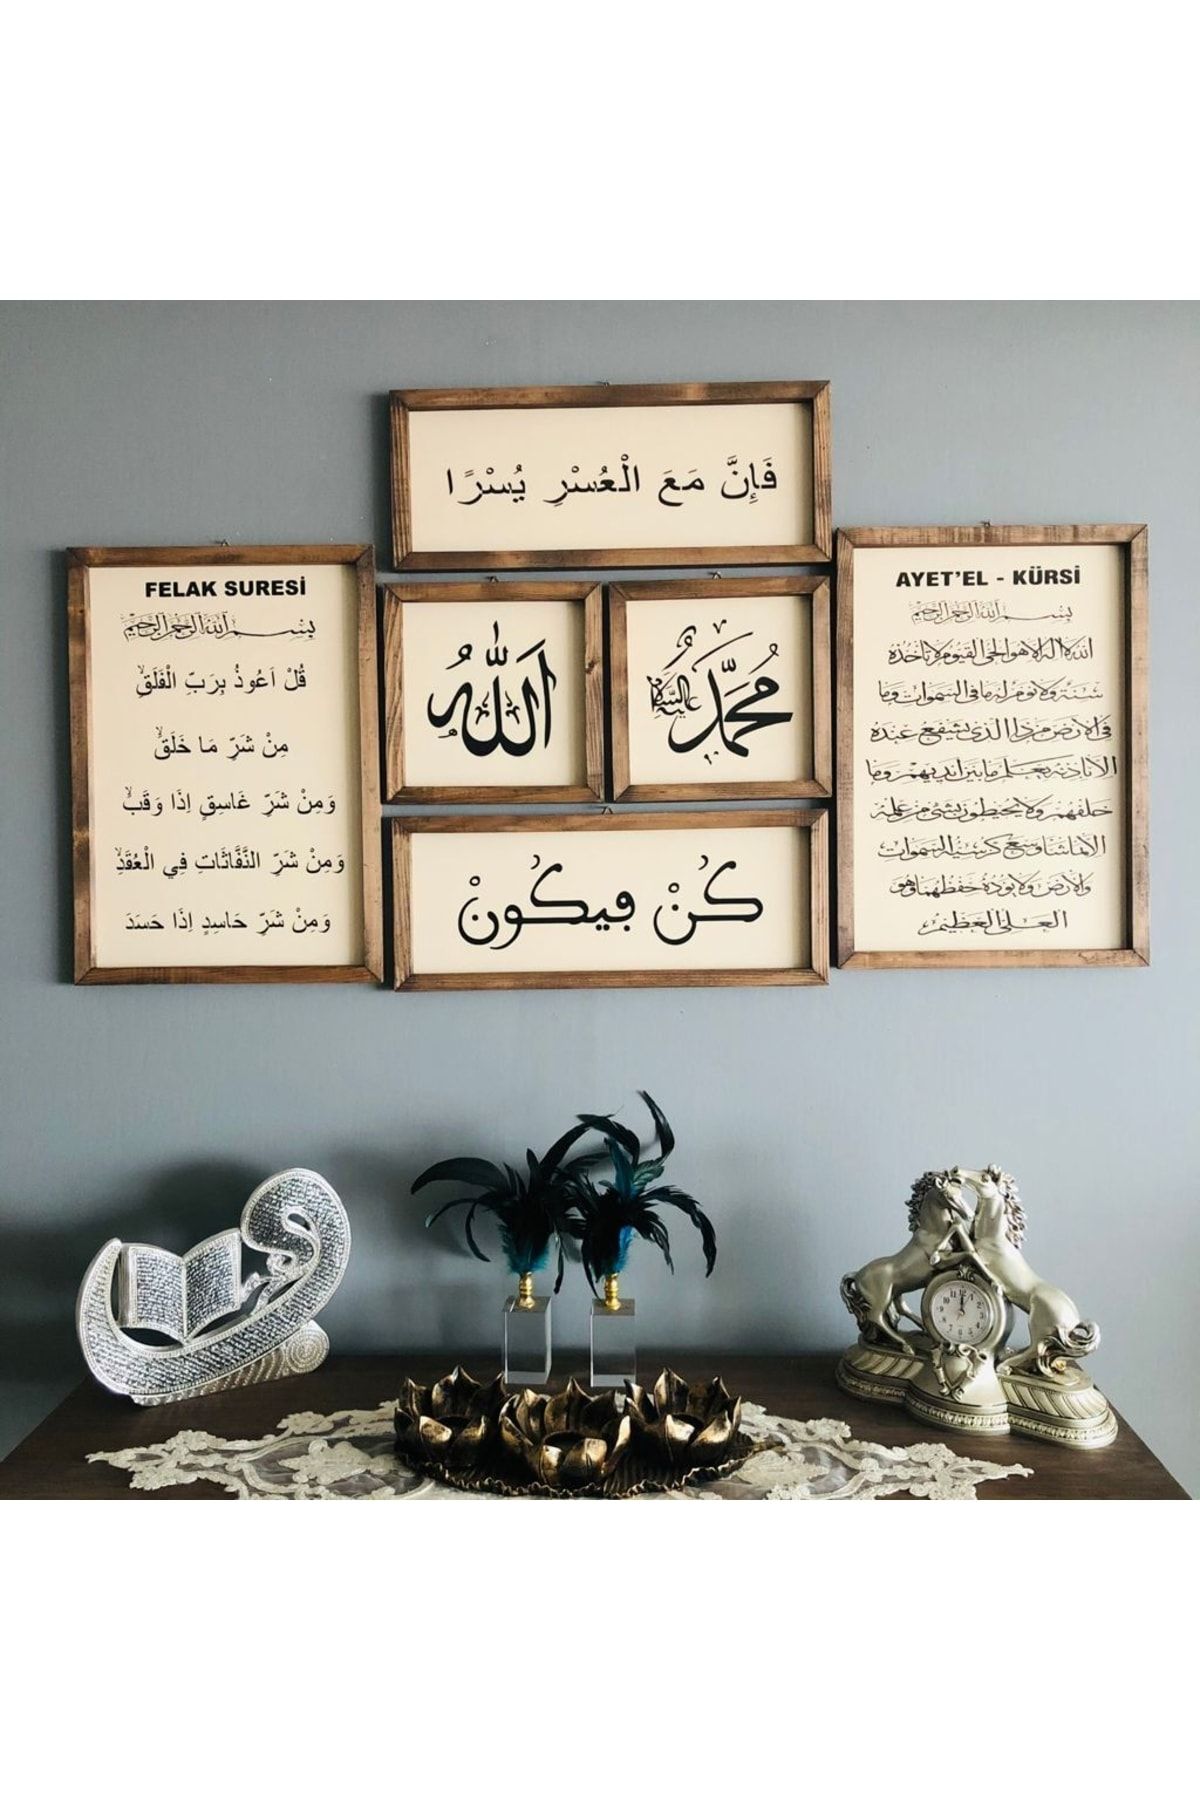 فَإِنَّ مَعَ الْعُسْرِ يُسْرًا
FELAK SURESİ
بسم الله الرحمن الرحيم
قُلْ اَعُوذُ بِرَبِّ الْفَلَقِۙ
مِنْ شَرِّ مَا خَلَقَۙ
وَمِنْ شَرِّ غَاسِقٍ اِذَا وَقَبَۙ
وَمِنْ شَرِّ النَّفَّاثَاتِ فِي الْعُقَدِۙ
وَمِنْ شَرِّ حَاسِدٍ اِذَا حَسَدَ
اَللّٰهُ
مُحَمَّد عليه السلام
كُنْ فيكُونْ
AYET’EL - KÜRSİ
بسم الله الرحمن الرحيم
الله لا اله الا هو الحي القيوم لا تأخذه
سنة ولا نوم له ما في السموات وما
في الارض من ذا الذي يشفع عنده
الا باذنه يعلم ما بين ايديهم وما
خلفهم ولا يحيطون بشئ من علمه
الا بما شاء وسع كرسيه السموات
والارض ولا يؤده حفظهما وهو
العلي العظيم